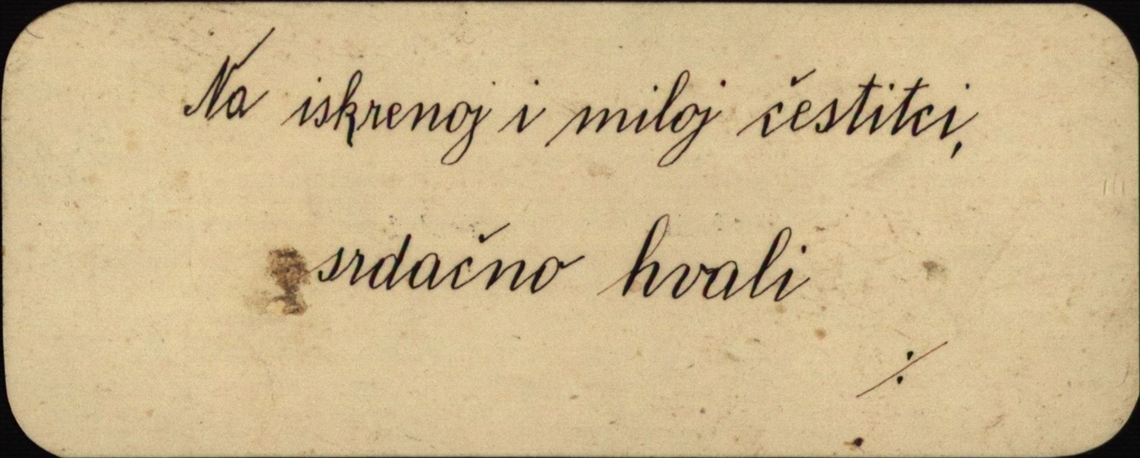 Na iskrenoj i miloj čestitci,
srdačno hvali
./.